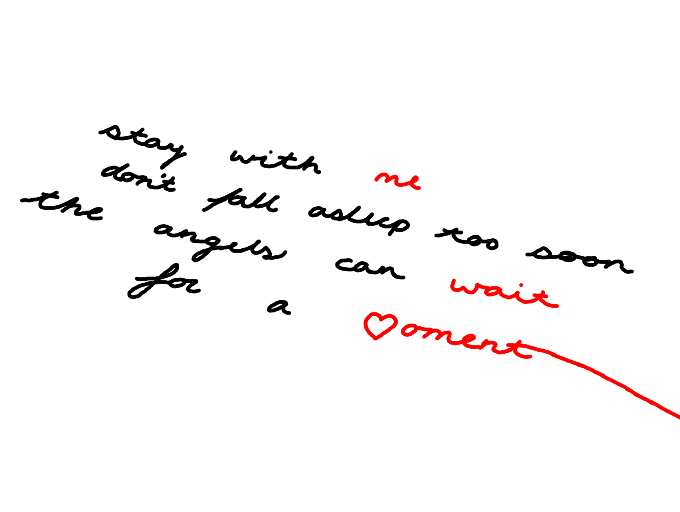 stay with me
don't fall asleep too soon
the angels can wait
for a ♡oment